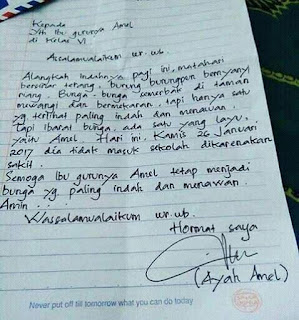 Kepada
Yth Ibu gurunya Amel
di Kelas VI
Assalamualaikum wr. wb.
Alangkah indahnya pagi ini, matahari
bersinar terang. Burung burungpun bernyanyi
riang. Bunga-bunga semerbak di taman
mewangi dan bermekaran. tapi hanya satu
yg terlihat paling indah dan menawan.
Tapi ibarat bunga, ada satu yang layu,
yaitu Amel. Hari ini, Kamis 26 Januari
2017 dia tidak masuk sekolah dikarenakan
sakit.
Semoga Ibu gurunya Amel tetap menjadi
bunga yg paling indah dan menawan.
Amin...
Wassalamualaikum wr. wb.
Hormat saya
(Ayah Amel)
Never put off till tomorrow what you can do today